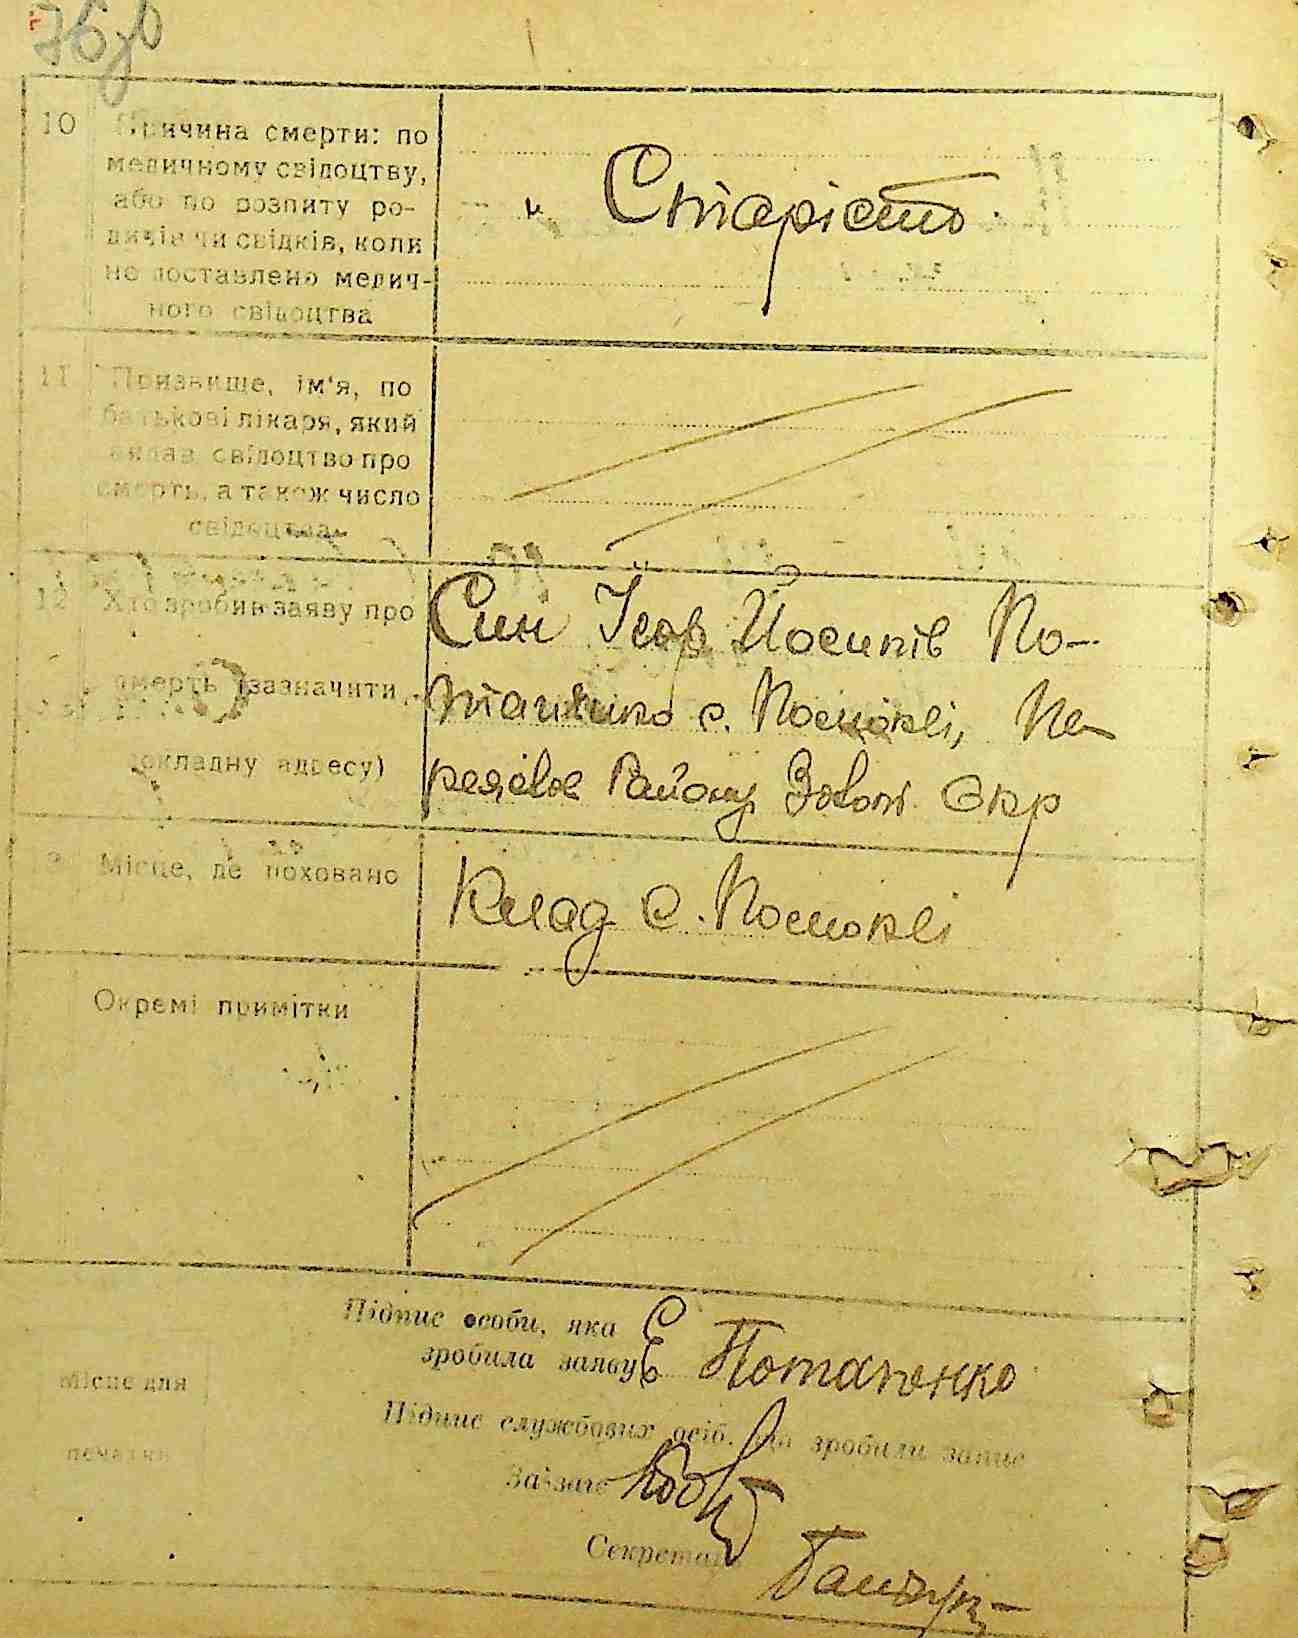 76зв
10
Причина смерти: по
медичному свідоцтву,
або по розпиту ро-
дичів чи свідків, коли
не доставлено медич-
ного свідоцтва
Старість
11
Призвище, ім'я, по
батькові лікаря, який
видав свідоцтво про
смерть, а також число
свідоцтва
12
Хто зробив заяву про
смерть (зазначити
докладну адресу)
Син Ігор Йосипів По-
тапенко с. Пристроми, Пе-
реяслав Району
Окр
Місце, де поховано
Клад с.
Окремі примітки
Підпис особи, яка
зробила заяву
Потапенко
Підпис службових осіб, що зробили запис
Зав.загс
Секретар
Місце для
печатки